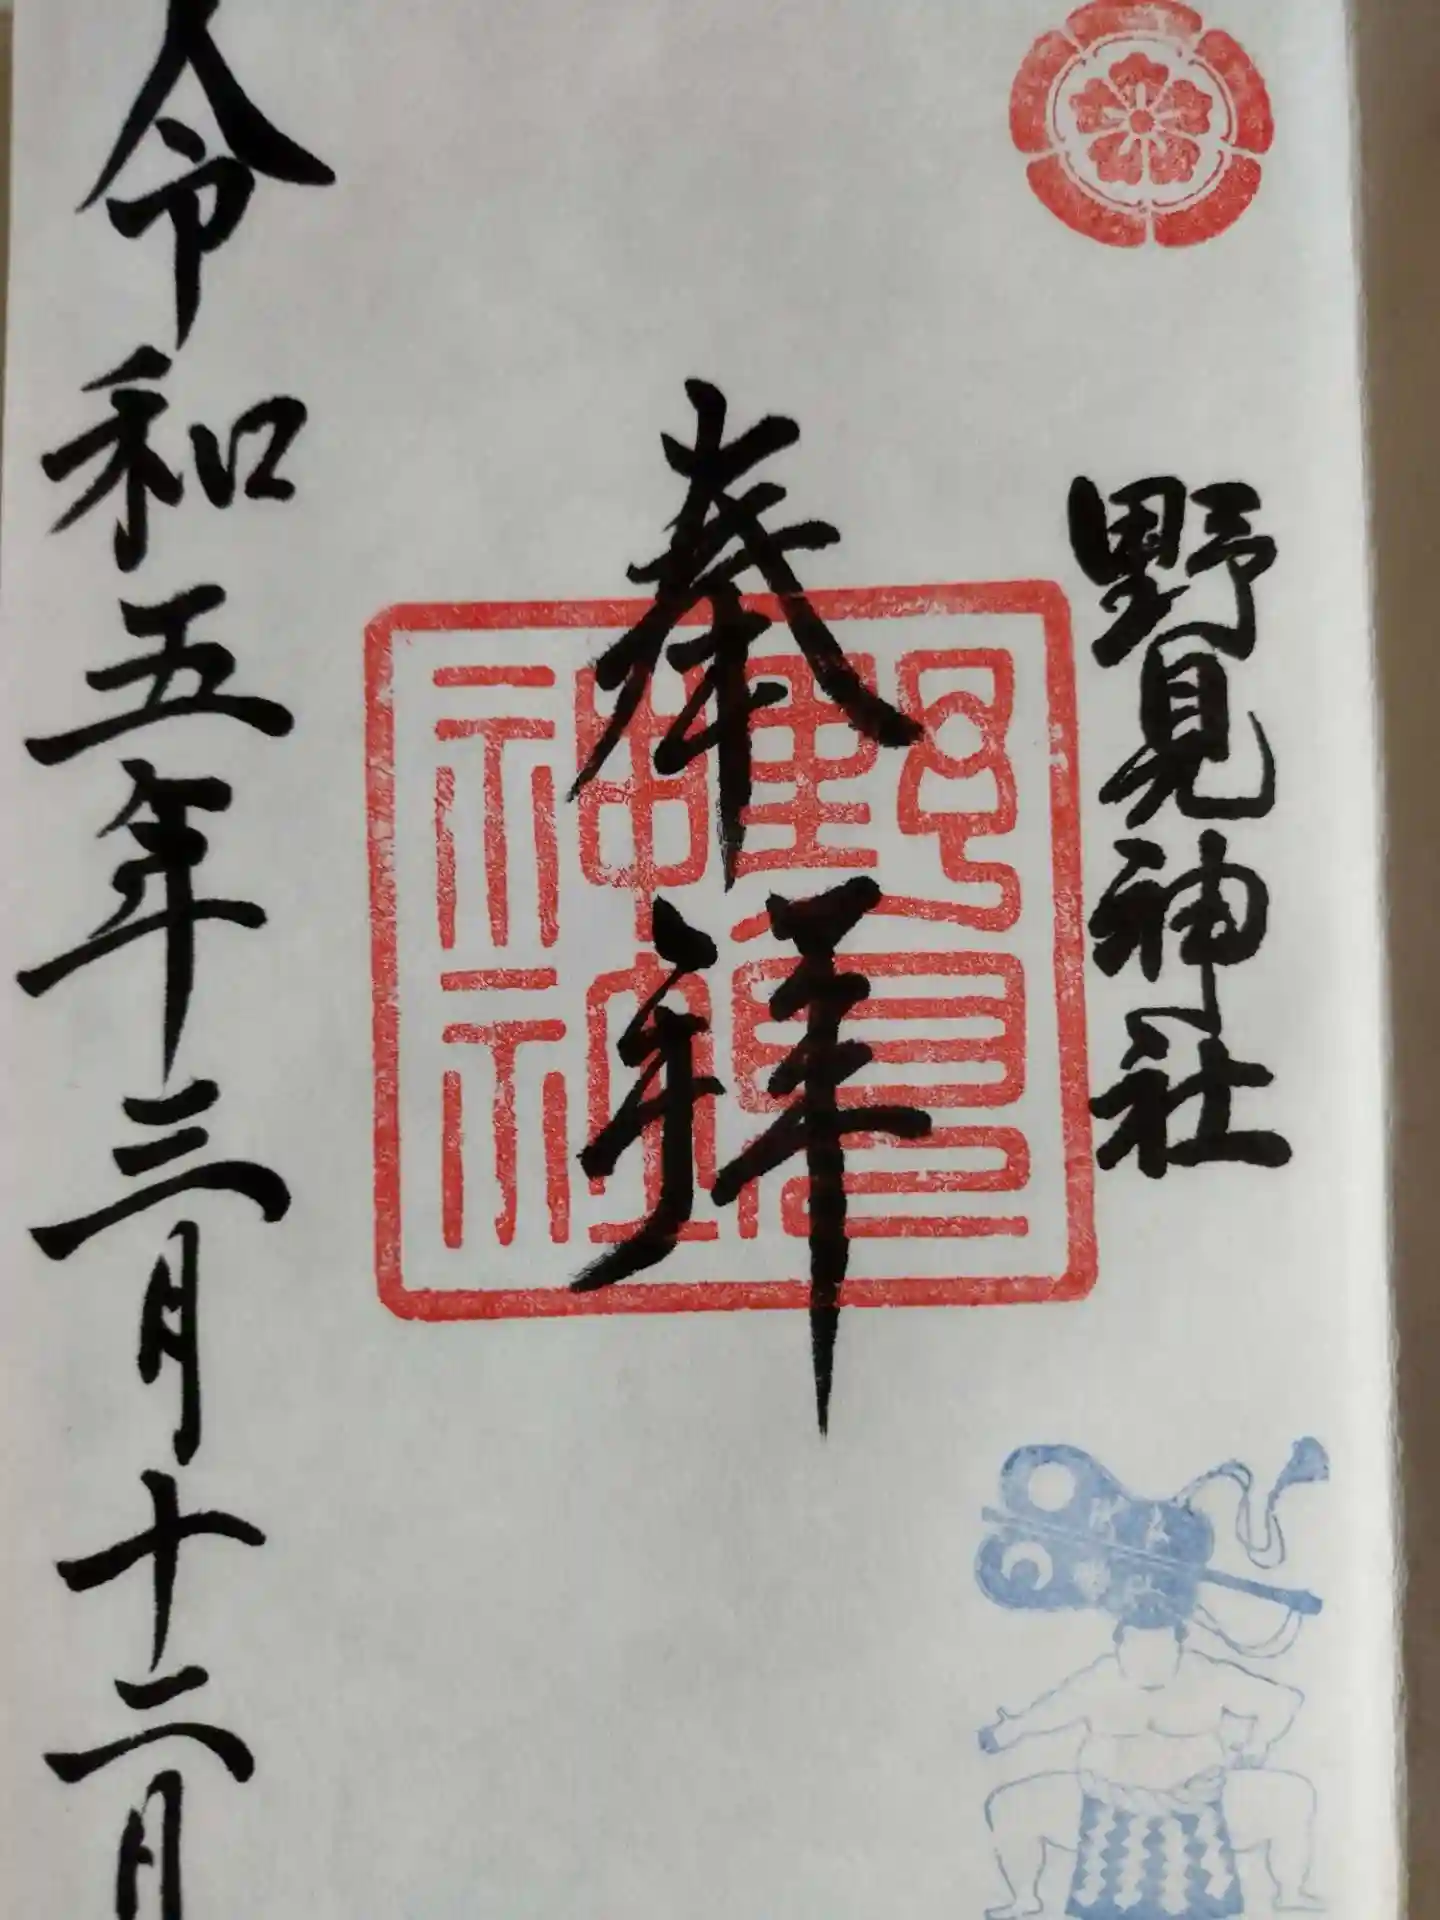 野見神社
奉拝
野見宿禰
神社
令和五年三月十二日